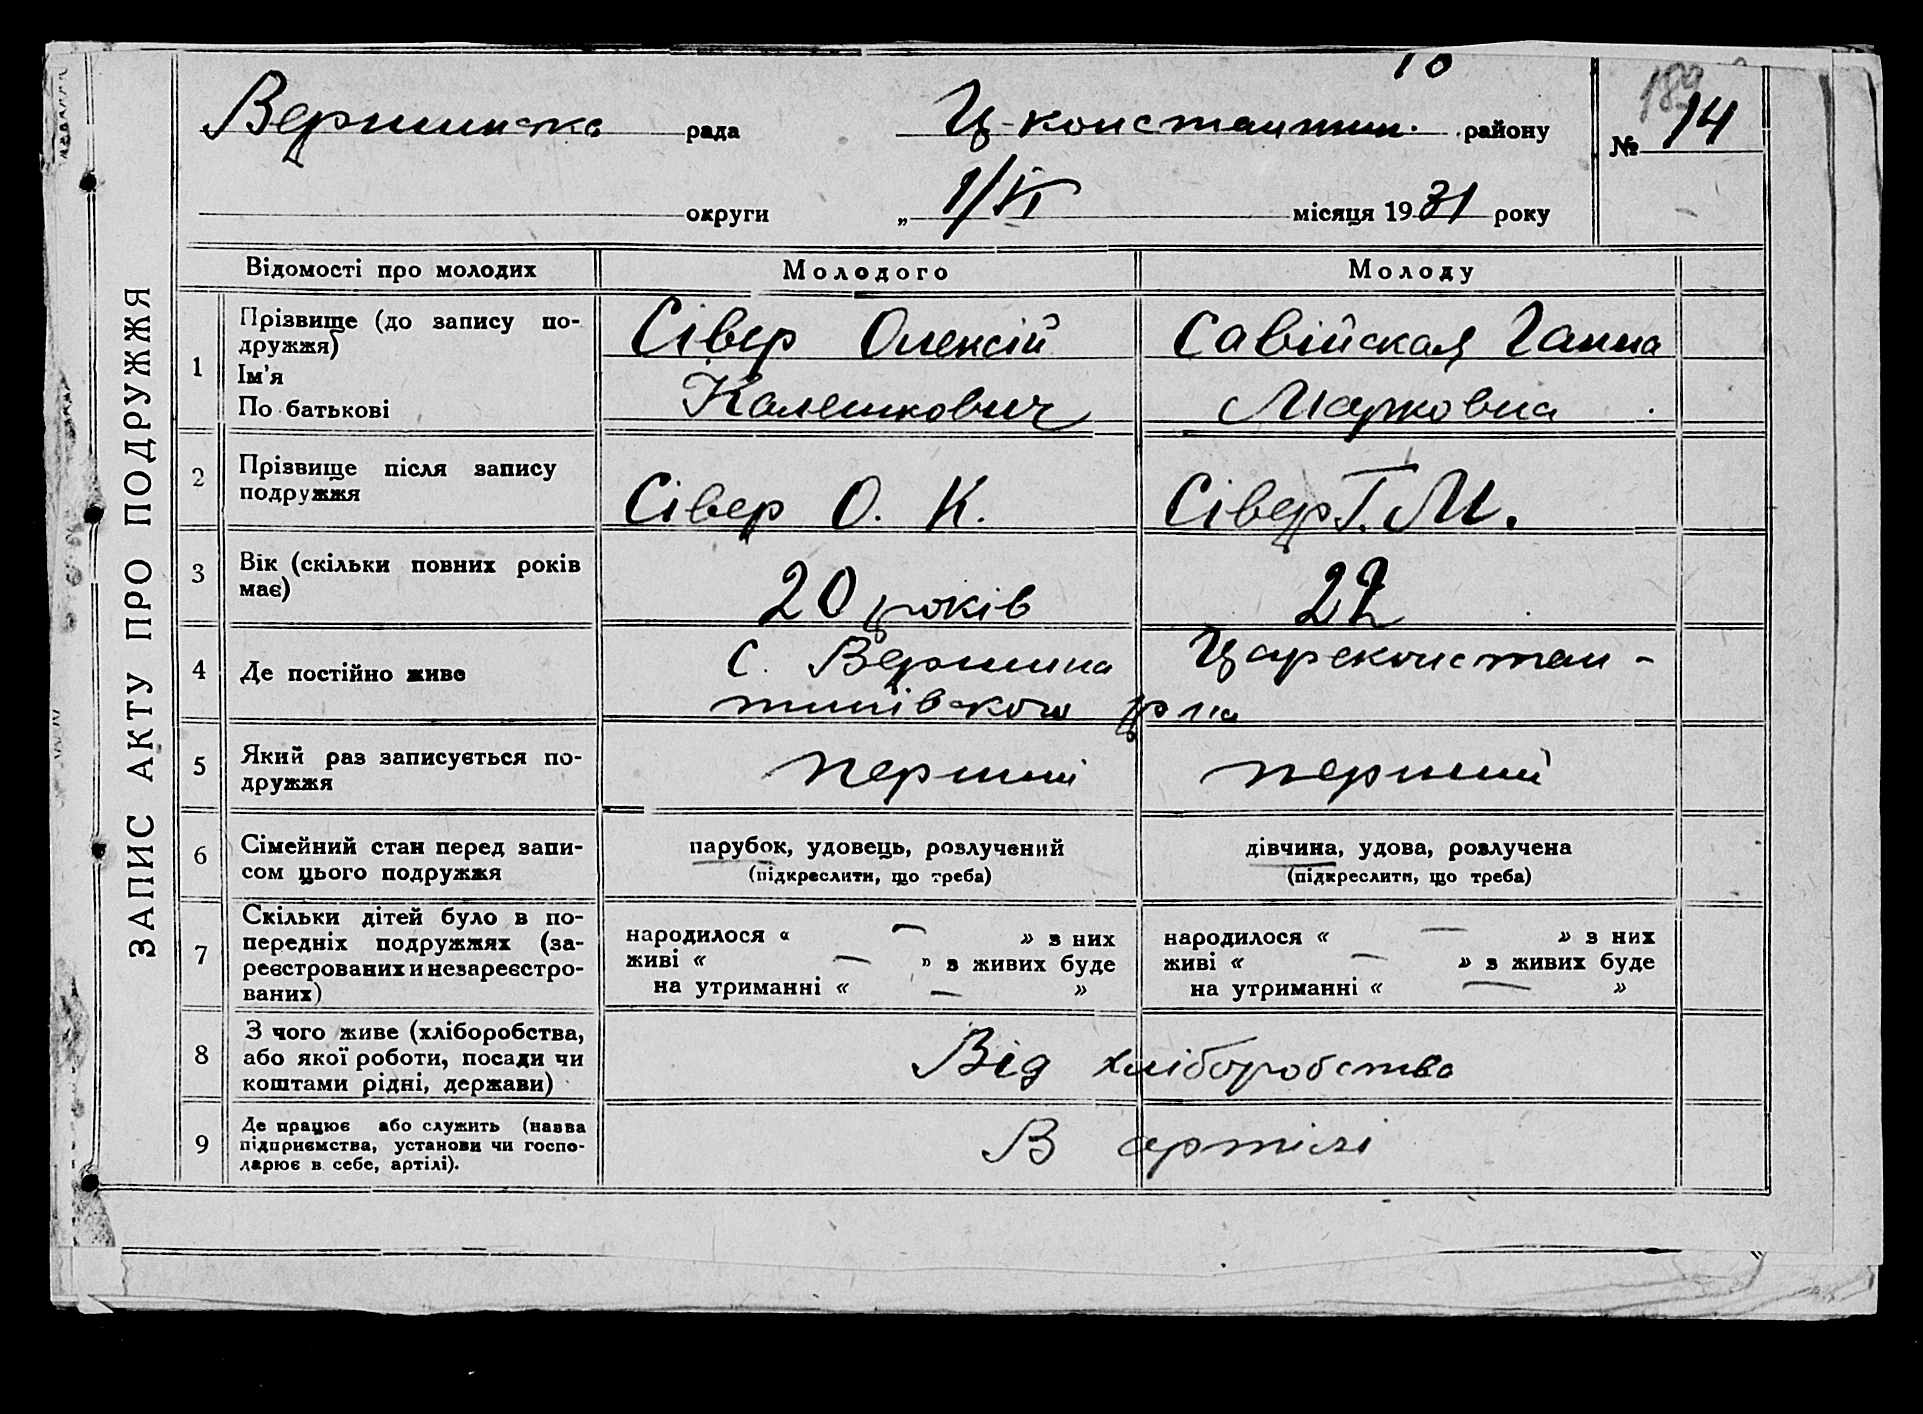 10
Вершинська рада Ц-констянтин. району № 14
189
округи „ 1/VI місяця 1931 року
ЗАПИС АКТУ ПРО ПОДРУЖЖЯ
Відомості про молодих Молодого Молоду
1 Прізвище (до запису по-
дружжя) Сівер Олексій Савійская Ганна
Ім'я
По батькові Калешкович Марковна
2 Прізвище після запису
подружжя Сівер О. К. Сівер Г. М.
3 Вік (скільки повних років
має) 20 років 22
4 Де постійно живе с. Вершина Цареконстан-
тинівського р-на
5 Який раз записується по-
дружжя перший перший
6 Сімейний стан перед запи-
сом цього подружжя
парубок, удовець, розлучений дівчина, удова, розлучена
(підкреслити, що треба) (підкреслити, що треба)
7 Скільки дітей було в по-
передніх подружжях (за-
реєстрованих и незареєстро-
ваних)
народилося « — » з них народилося « — » з них
живі « — » з живих буде живі « — » з живих буде
на утриманні « — » на утриманні « — »
8 З чого живе (хліборобства,
або якої роботи, посади чи
коштами рідні, держави)
Від хліборобства
9 Де працює або служить (назва
підприємства, установи чи госпо-
дарює в себе, артілі).
В артілі